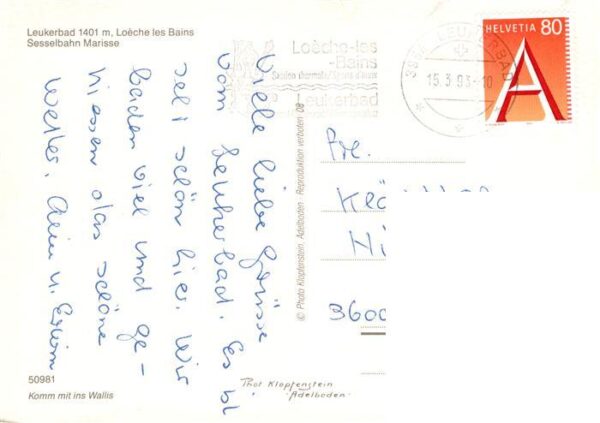 Leukerbad 1401 m, Loèche les Bains
Sesselbahn Marisse
Loèche-les
-Bains
Leukerbad
LEUKERBAD
15.3.93-10
HELVETIA 80
A
Viele liebe Grüsse
vom Leukerbad. Es ist
sehr schön hier. Wir
baden viel und ge-
niessen das schöne
Wetter. u. Erwin
© Photo Klopfenstein, Adelboden - Reproduktion verboten 08
Frl.
3600
50981
Komm mit ins Wallis
Phot Klopfenstein
Adelboden